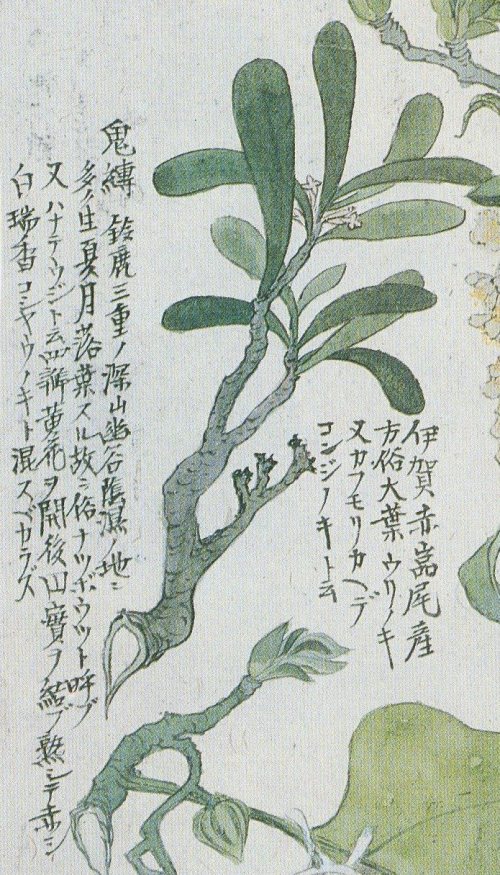 伊賀赤嵓尾産
方俗大葉ウリノキ
又カフモリカヘデ
コンジノキト云
鬼縛 鈴鹿三重ノ深山幽谷陰濕ノ地ニ
多ク生夏月落葉スル故ニ俗ナツボウヅト呼ブ
又ハナテウジト云四瓣黄花ヲ開後山實ヲ結ブ熟シテ赤シ
白瑞香コシヤウノキト混スベカラズ